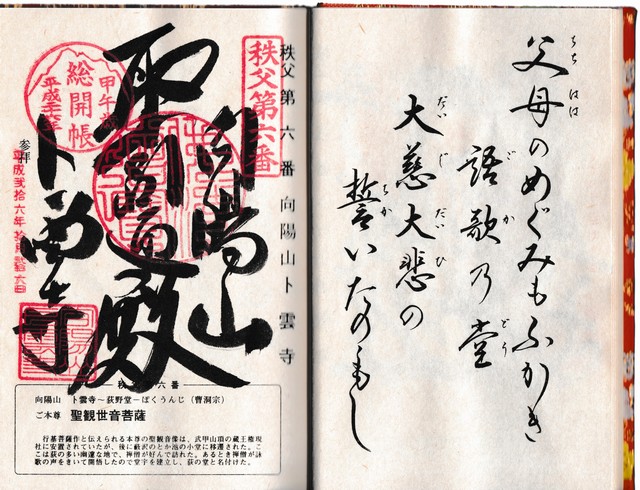 父母のめぐみもふかき
ちちはは
語歌乃堂
ごかどう
大慈大悲の
だいじだいひ
誓いたのもし
ちか
秩父第六番 向陽山卜雲寺
秩父第六番
甲午歳
総開帳
平成二十六年
向陽山
聖観音殿
卜雲寺
参拝
平成弐拾六年拾月弐拾六日
秩父第六番
向陽山 卜雲寺〜荻野堂―ぼくうんじ(曹洞宗)
ご本尊 聖観世音菩薩
行基菩薩作と伝えられる本尊の聖観音像は、武甲山頂の蔵王権現
社に安置されていたが、後に
の小堂に移遷された。こ
こは荻の多い幽邃な地で、禅僧が好んで訪れた。あるとき禅僧が詠
歌の声をきいて開悟したので堂宇を建立し、荻の堂と名付けた。